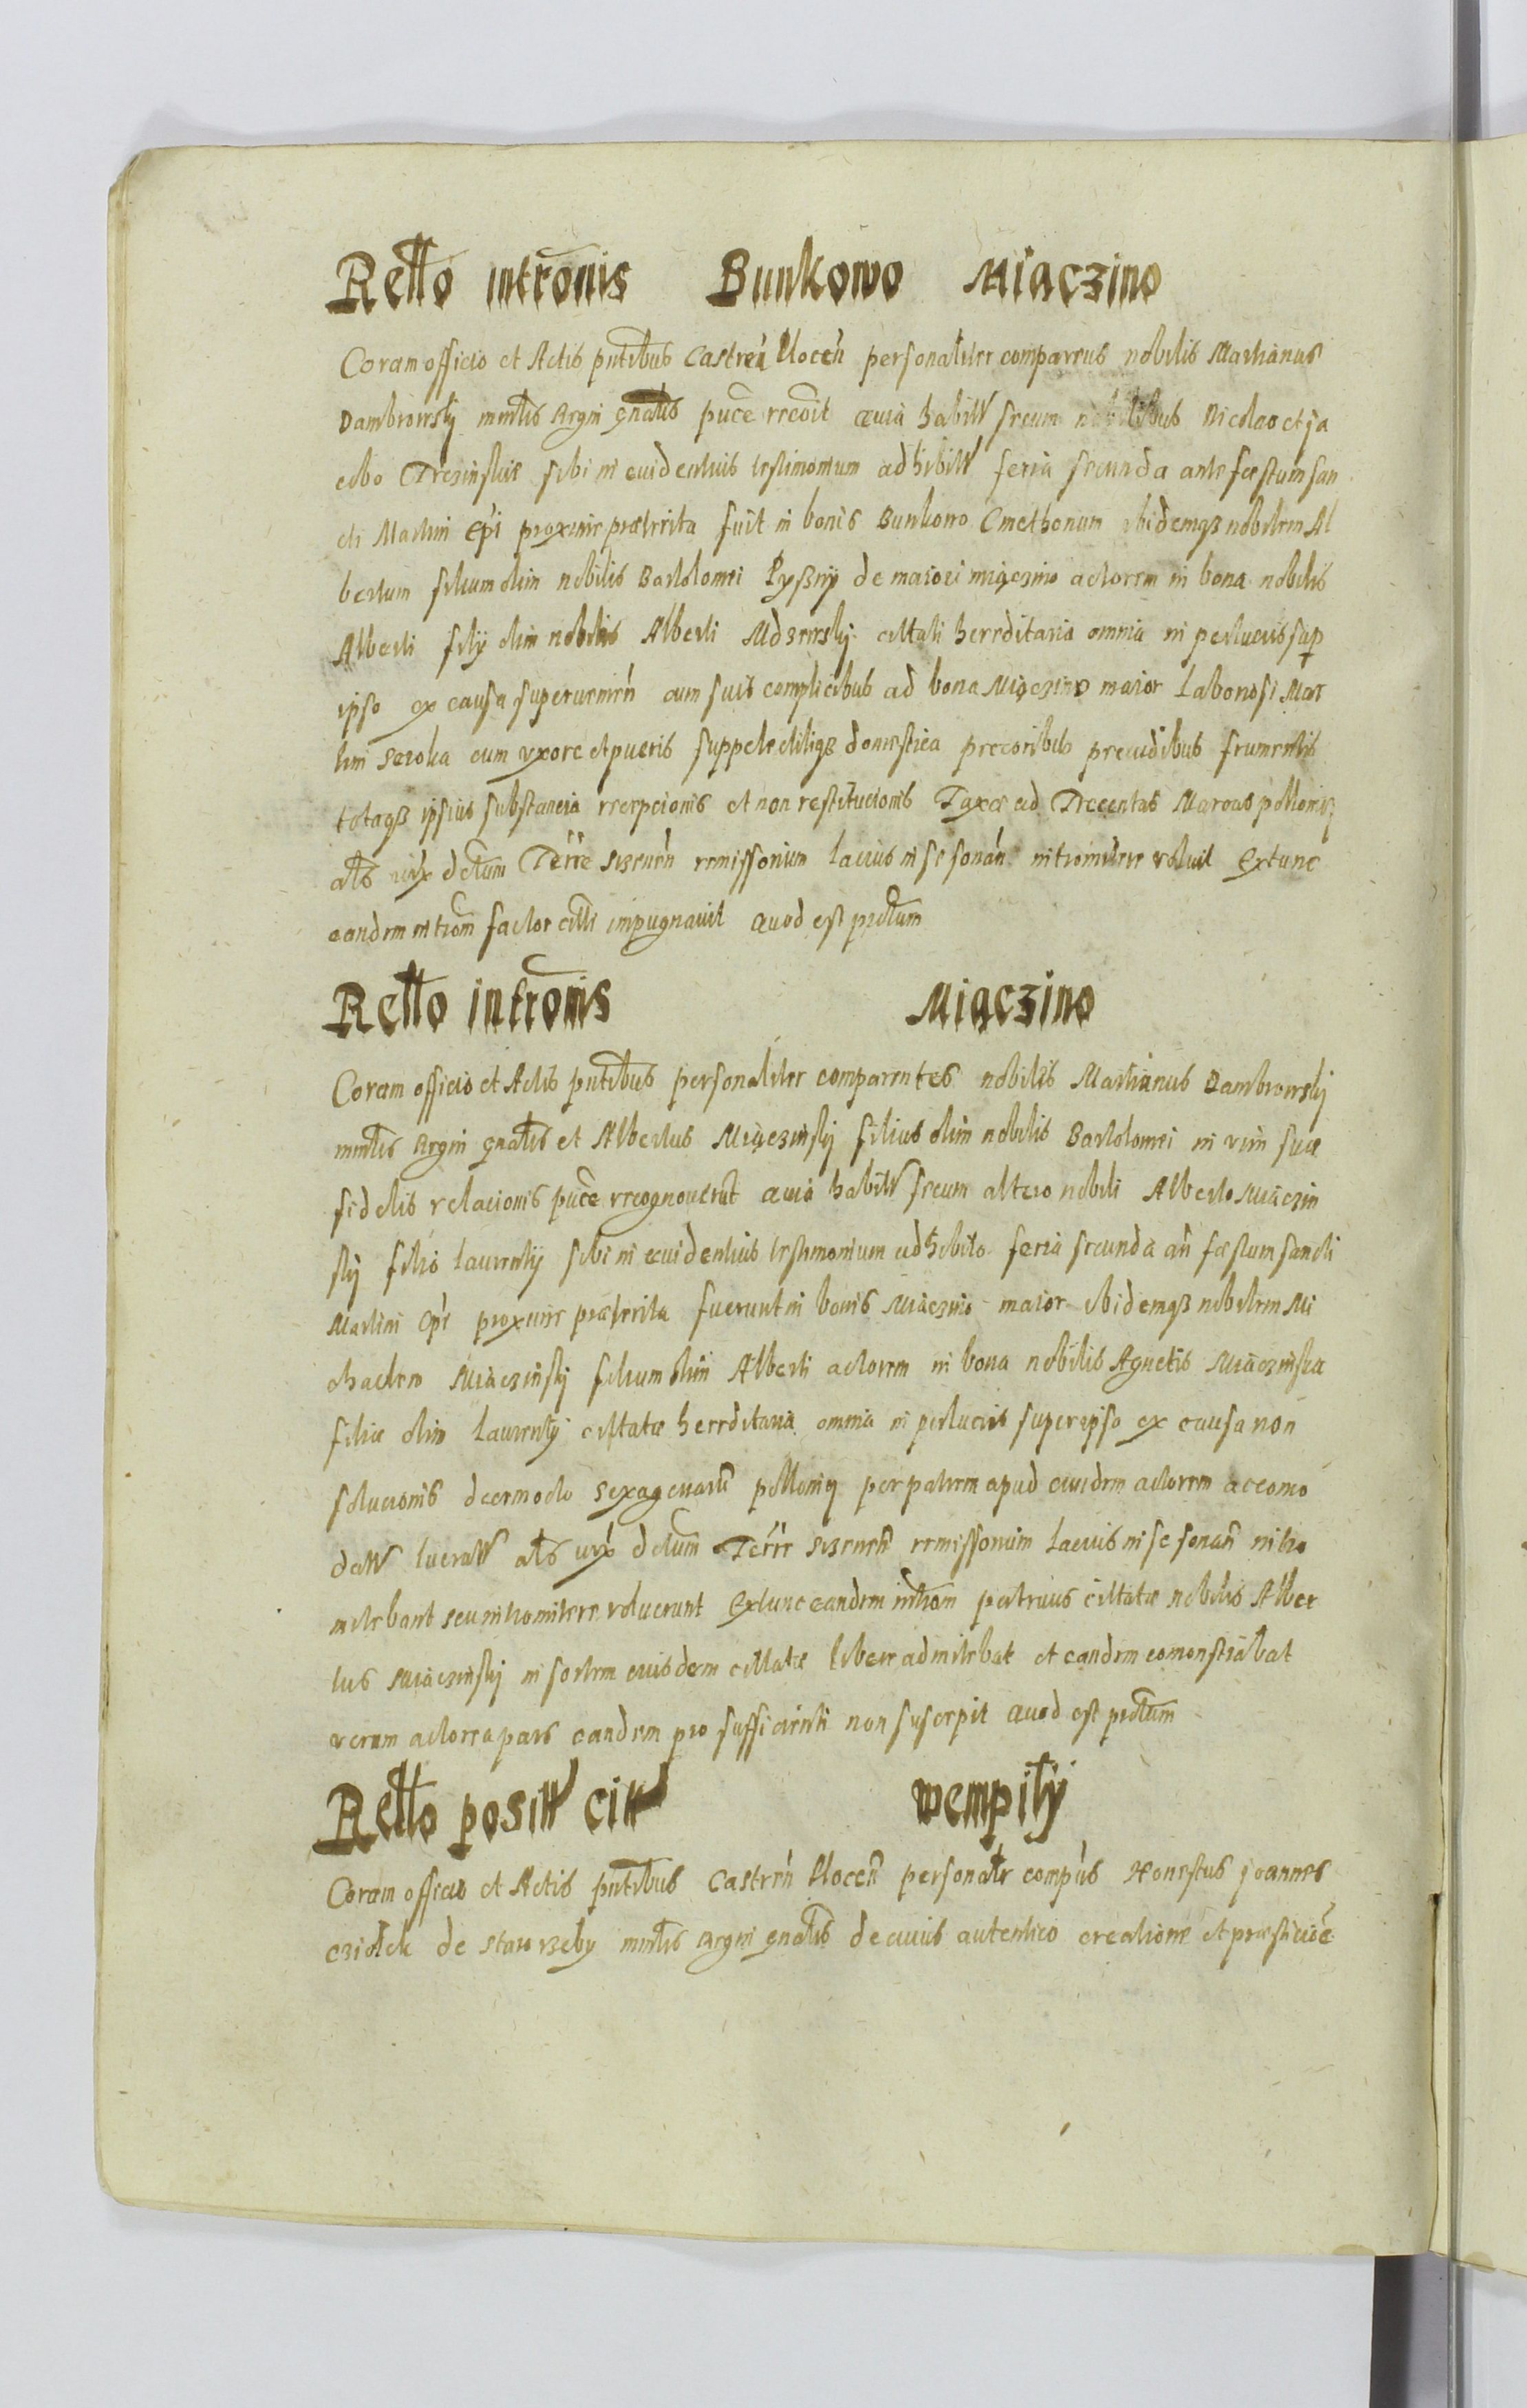 Rello intronis Bunkowo Miączino
Coram officio et Actis pntibus Castren Plocen personaliter comparens nobilis Martianus
Dambrowsky mnlis Regni gnalis puce recoit quia habitis secum nobilibus Nicolao et ja
cobo Trczinskie sibi in evidentius testimonium adhibitis feria secunda ante fæstum san
cti Martini Epi proxime præterita fuit in bonis Bunkowo Cmethonum ibidemqz nobilem Al
bertum filium olim nobilis Bartolomei de maiori miączino actorem in bona nobilis
Alberti filij olim nobilis Alberti citati hereditaria omnia in perlucris sup
ipso ex causa supervenien cum suis complicibus ad bona Miączino maior Laboriosi Mar
tini Seroka cum uxore et pueris suppelectiliqz domestica pecoribus pecudibus frumentis
totaqz ipsius substancia recepcionis et non restitucionis Taxæ ad Trecentas Marcas polloniz
als iux detum Terre Szrenen remissorium lacius in se sonan intromitere voluit Extunc
eandem introm factor citti impugnavit Quod est pnctum
Rello intronis Miączino
Coram officio et Actis pntibus personaliter comparentes nobilis Martianus Dambrowsky
mnlis Regni gnalis et Albertus Miączinsky filius olim nobilis Bartolomei in vim suæ
fidelis relacionis puce recognoverut quia habitis secum altero nobili Alberto Miaczin
sky filio Laurentij sibi in evidentius testimonium adhibito feria secunda an fæstum sancti
Martini Epi proxime præterita fuerunt in bonis Miączino maior ibidemqz nobilem Mi
chaelem Miączinsky filium olim Alberti actorem in bona nobilis Agnetis Miączinska
filiæ olim Laurentij citatæ hereditaria omnia in perlucris super ipso ex causa non
solucionis decem octo sexagenaru pollony per patrem apud eundem actorem accomo
datt lucratt als iux detum Terre Szrenen remissorium lacius in se sonan intro
mitebant seu intromitere voluerunt Extunc eandem introm patruus citatæ nobilis Alber
tus Miączinsky in sortem eiusdem citatæ libere admitebat et eandem comonstrabat
verum actorea pars eandem pro sufficienti non suscepit Quod est pnctum
Rello positt citt wempiły
Coram officio et Actis pntibus Castren Plocen personalr compns Honestus joannes
cziolek de starorzeby mnlis Regni gnalis de cuius autentico creatione et præfticioe